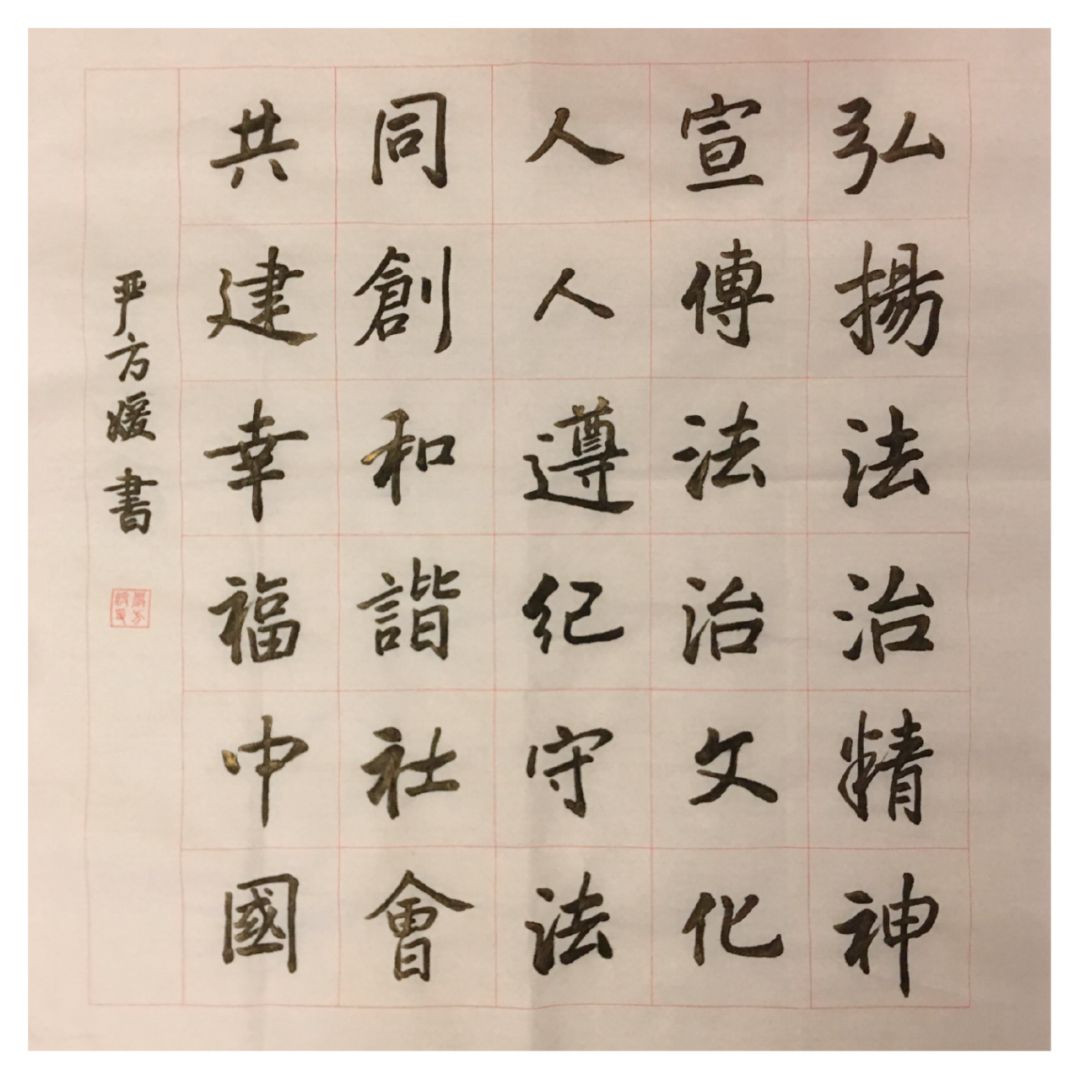 弘揚法治精神
宣傳法治文化
人人遵纪守法
同創和諧社會
共建幸福中國
严方媛書